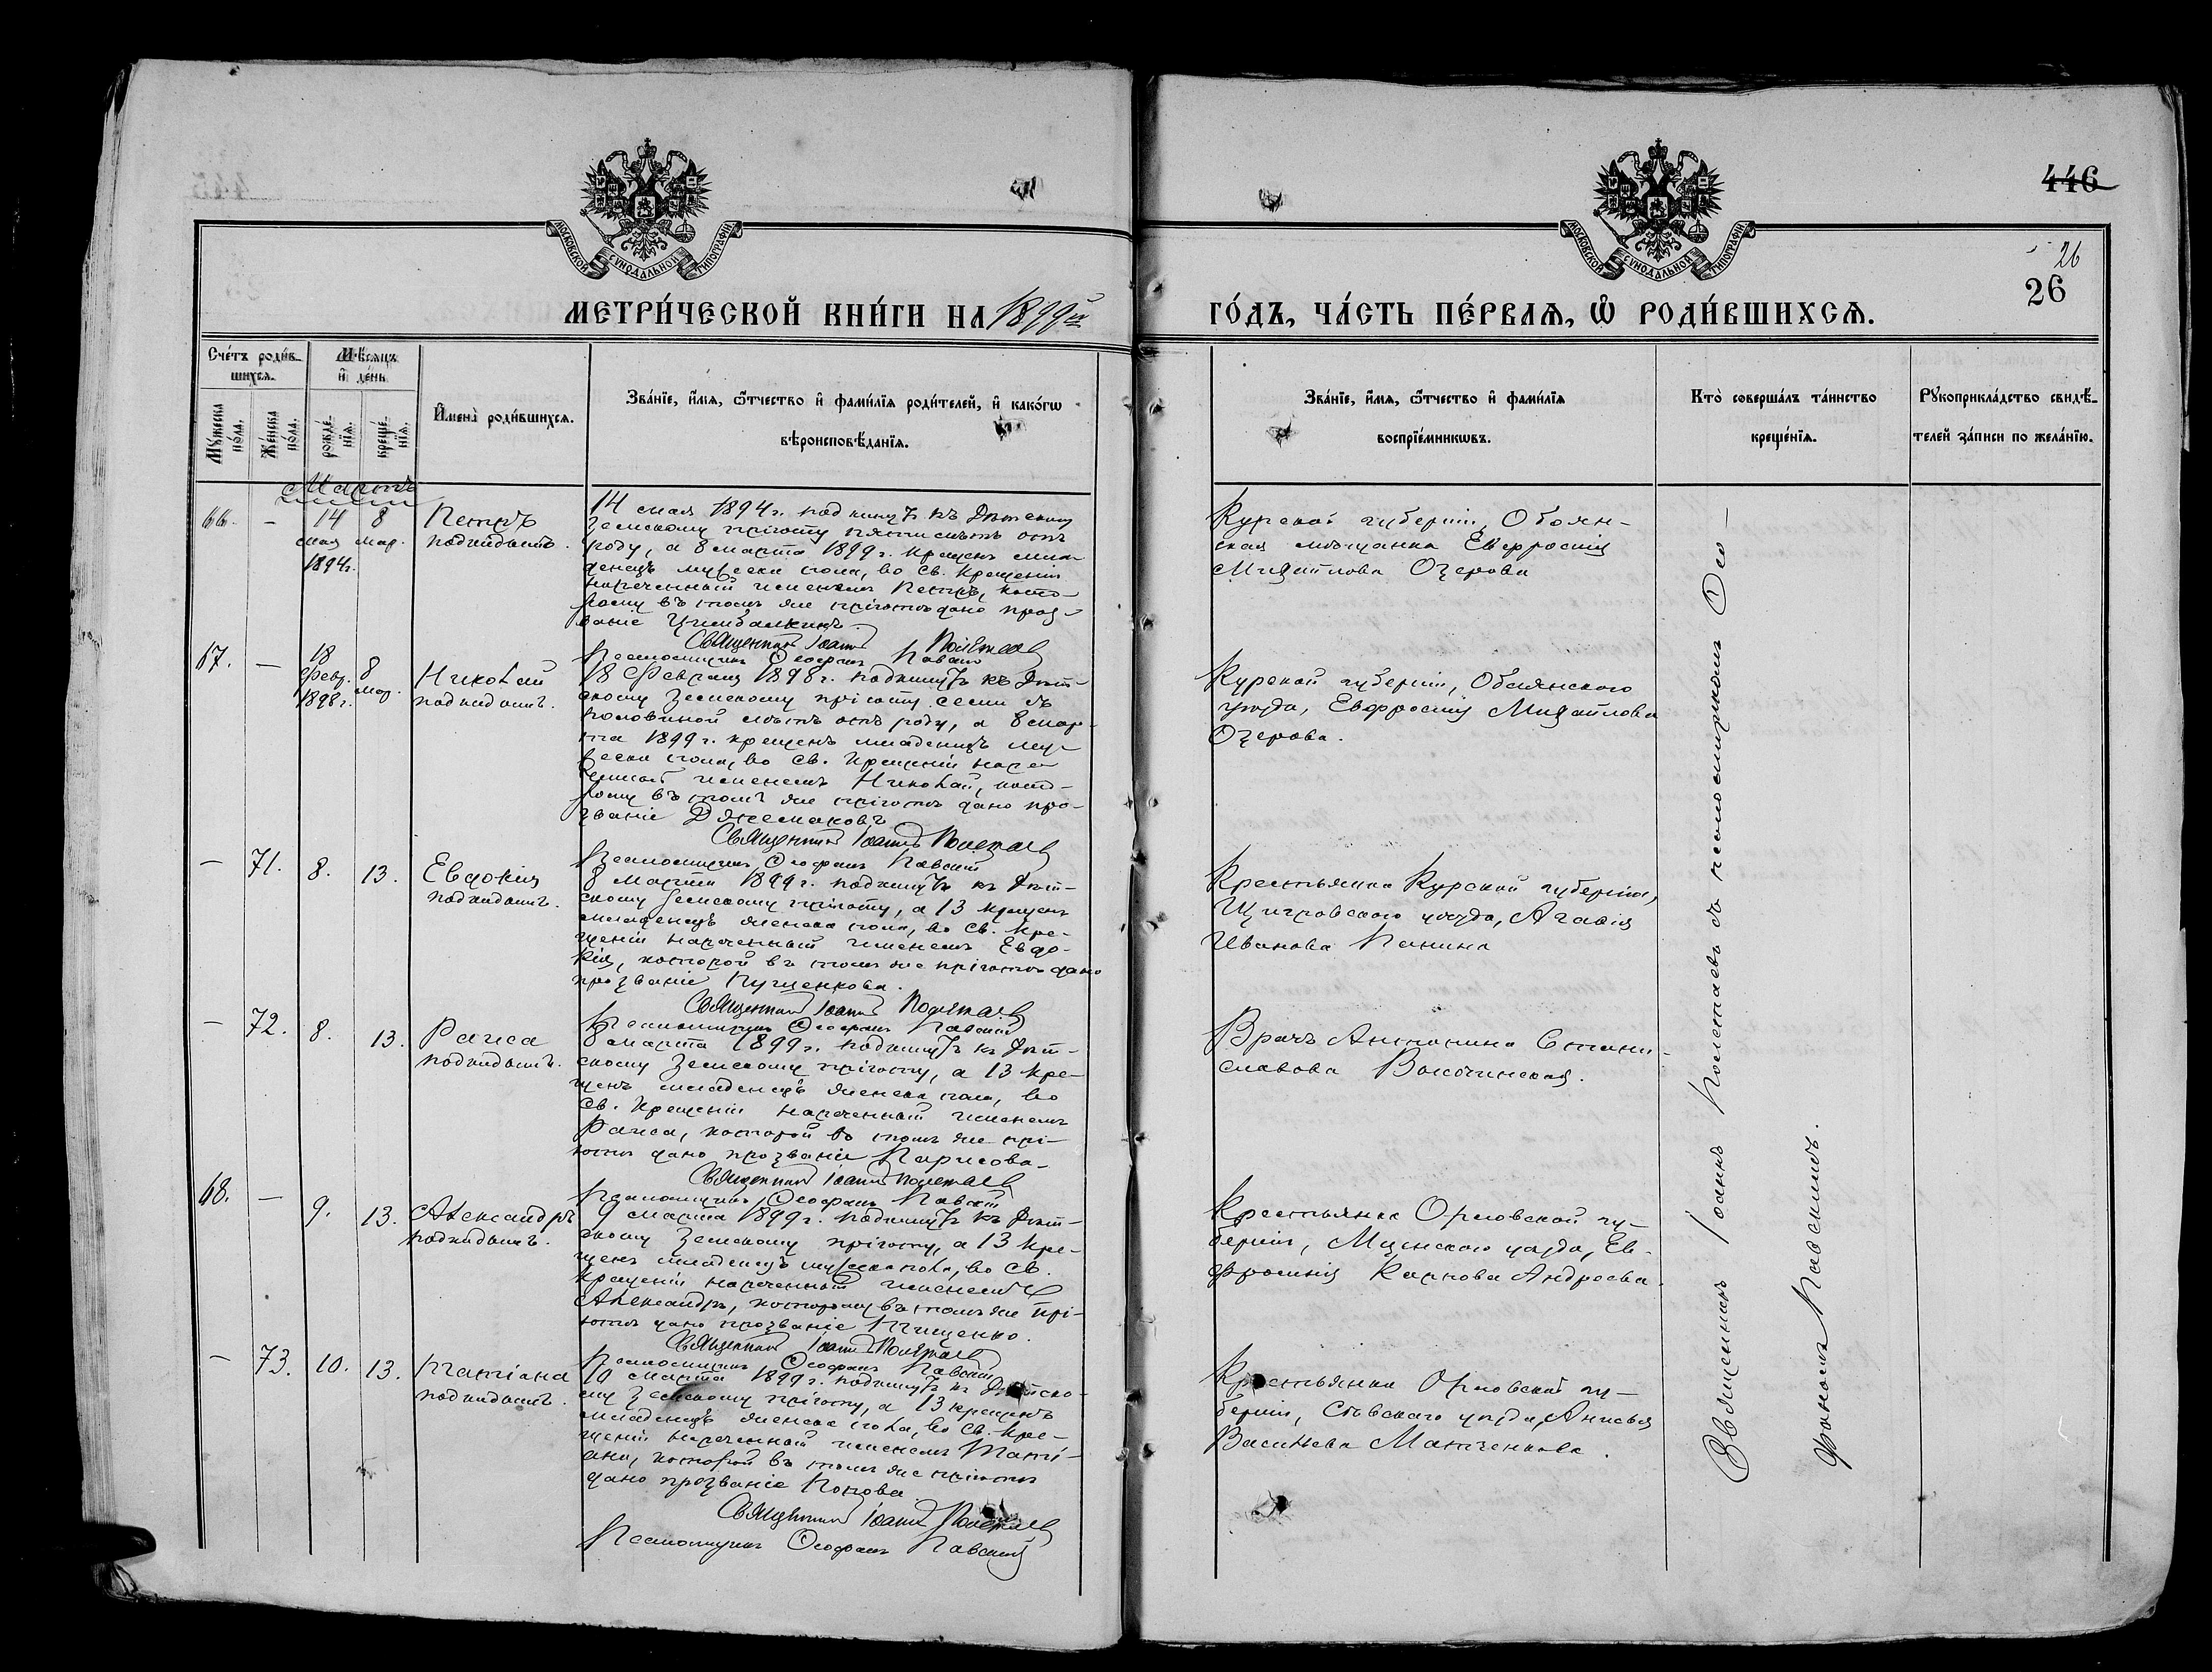 446
26
26
МОСКОВСКОЙ СѴНОДАЛЬНОЙ ТИПОГРАФІИ
МОСКОВСКОЙ СѴНОДАЛЬНОЙ ТИПОГРАФІИ
МЕТРИ́ЧЕСКОЙ КНИ́ГИ НА 1899й
ГО́ДЪ, ЧА́СТЬ ПЕ́РВАѦ, Ѽ РОДИ́ВШИХСѦ.
Сче́тъ роди́в-
шихсѧ.
Мѣ́сяцъ
и҆ де́нь
Му́жеска по́ла.
Же́нска по́ла.
рожде́нїѧ.
креще́нїѧ.
И҆мена̀ роди́вшихсѧ.
Зва́нїе, и҆́мѧ, ѻ҆́тчество и҆ фами́лїѧ роди́телей, и҆ како́гѡ
вѣроисповѣ́данїѧ.
Зва́нїе, и҆́мѧ, ѻ҆́тчество и҆ фами́лїѧ
воспрїе́мникѡвъ.
Кто̀ соверша́лъ та́инство
креще́нїѧ.
Рꙋкоприкла́дство свидѣ́-
телей за́писи по жела́нїю.
Мартъ
66. – 14 мая 1894г. 8 мар.
Петръ
подкидышъ.
14 мая 1894г. подкинутъ къ Дѣтскому
Земскому пріюту пяти лѣтъ отъ
роду, а 8 марта 1899г. крещенъ мла-
денецъ мужеска пола, во Св. Крещеніи
нареченный именемъ Петръ, кото-
рому въ томъ же пріютѣ дано проз-
ваніе Цимбалкинъ.
Священникъ Іоаннъ Полетаевъ
Псаломщикъ Ѳеофанъ Павскій
Курской губерніи, Обоян-
ская мѣщанка Евфросинія
Михайлова Озерова
67. – 18 Февр. 1898г. 8 мар.
Николай
подкидышъ.
18 Февраля 1898г. подкинутъ къ Дѣт-
скому Земскому пріюту семи съ
половиной лѣтъ отъ роду, а 8 мар-
та 1899г. крещенъ младенецъ му-
жеска пола, во Св. Крещеніи наре-
ченный именемъ Николай, кото-
рому въ томъ же пріютѣ дано про-
званіе
Священникъ Іоаннъ Полетаевъ
Псаломщикъ Ѳеофанъ Павскій
Курской губерніи, Обоянского
уѣзда, Евфросинія Михайлова
Озерова.
– 71. 8. 13.
Евдокія
подкидышъ.
8 Марта 1899г. подкинутъ къ Дѣт-
скому Земскому пріюту, а 13 крещенъ
младенецъ женска пола, во Св. Кре-
щеніи нареченный именемъ Евдо-
кія, которой въ томъ же пріютѣ дано
прозваніе
Священникъ Іоаннъ Полетаевъ
Псаломщикъ Ѳеофанъ Павскій
Крестьянка Курской губерніи,
Щигровского уѣзда, Агафія
Иванова Панина
– 72. 8. 13.
Раиса
подкидышъ.
8 марта 1899г. подкинутъ къ Дѣт-
скому Земскому пріюту, а 13 кре-
щенъ младенецъ женска пола, во
Св. Крещеніи нареченный именемъ
Раиса, которой въ томъ же прі-
ютѣ дано прозваніе Парисова
Священникъ Іоаннъ Полетаевъ
Псаломщикъ Ѳеофанъ Павскій
Врачъ Антонина Стани-
славова
68. – 9. 13.
Александръ
подкидышъ.
9 марта 1899г. подкинутъ къ Дѣт-
скому Земскому пріюту, а 13 кре-
щенъ младенецъ мужеска пола, во Св.
Крещеніи нареченный именемъ
Александръ, которому въ томъ же прі-
ютѣ дано прозваніе Тищенко.
Священникъ Іоаннъ Полетаевъ
Псаломщикъ Ѳеофанъ Павскій
Крестьянка Орловской гу-
берніи, Мценского уѣзда, Ев-
фросинія Карпова Андреева.
– 73. 10. 13.
Татіана
подкидышъ.
10 марта 1899г. подкинутъ къ Дѣтско-
му Земскому пріюту, а 13 крещенъ
младенецъ женска пола, во Св. Кре-
щеніи нареченный именемъ Тати-
ана, которой въ томъ же пріютѣ
дано прозваніе Попова
Священникъ Іоаннъ Полетаевъ
Псаломщикъ Ѳеофанъ Павскій
Крестьянка Орловской гу-
берніи, Сѣвскаго уѣзда, Анисья
Васильева
Священникъ Іоаннъ Полетаевъ съ псаломщикомъ Ѳео-
фаномъ Павскимъ.